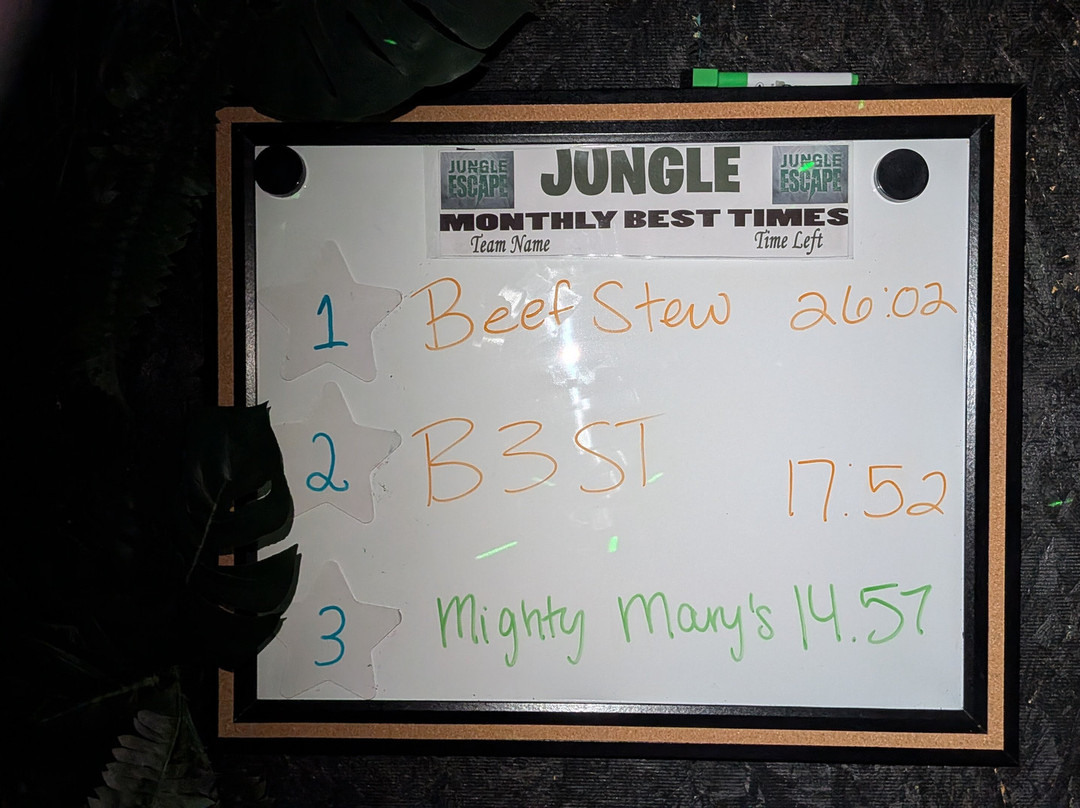 JUNGLE ESCAPE JUNGLE JUNGLE ESCAPE
MONTHLY BEST TIMES
Team Name Time Left
1 Beef Stew 26:02
2 B3ST 17:52
3 Mighty Mary's 14.57